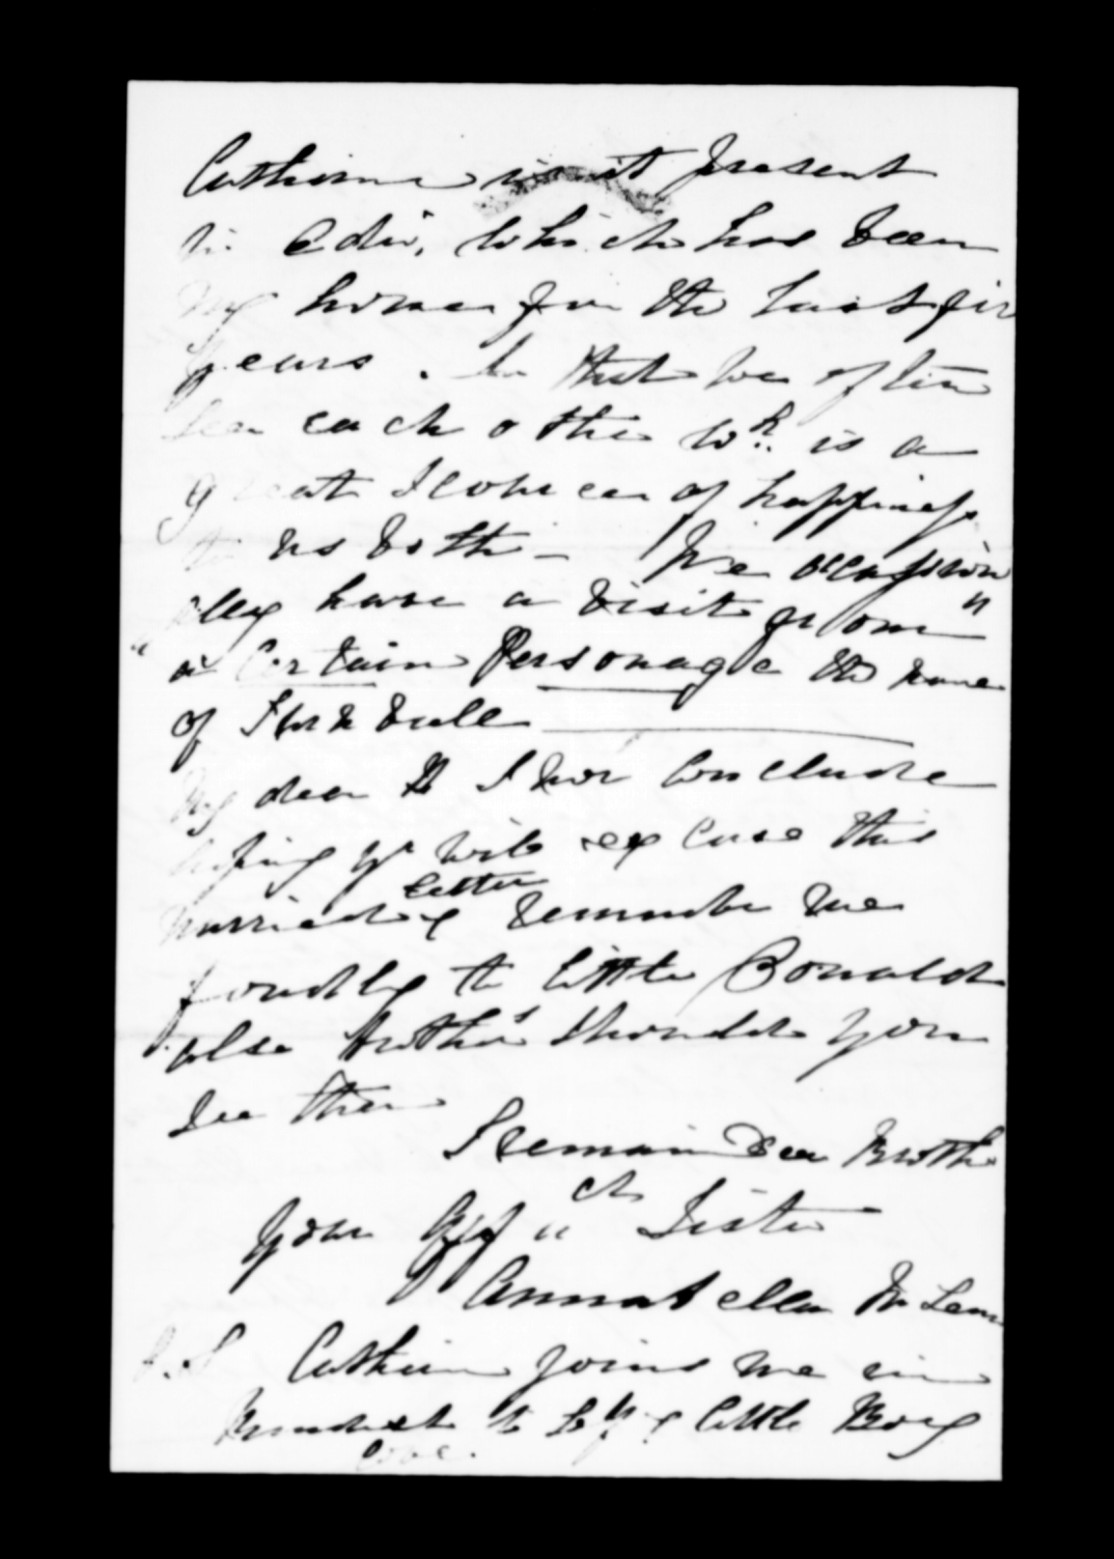 Catherine is at present
in Edinr, which has been
my home for the last six
years. So that we often
see each other wh. is a
great source of happiness
to us both — We occasion
"ally have a visit from"
a Certain Personage the name
of
My dear D I now conclude
hoping yr will excuse this
hurried letter & remember me
fondly to little Donald
also Arthur's should you
see them
I remain Dear Brother
Your Aff "ate Sister
Annabella McLean
P.S Catherine joins me in
kindest to & little Boy
love.